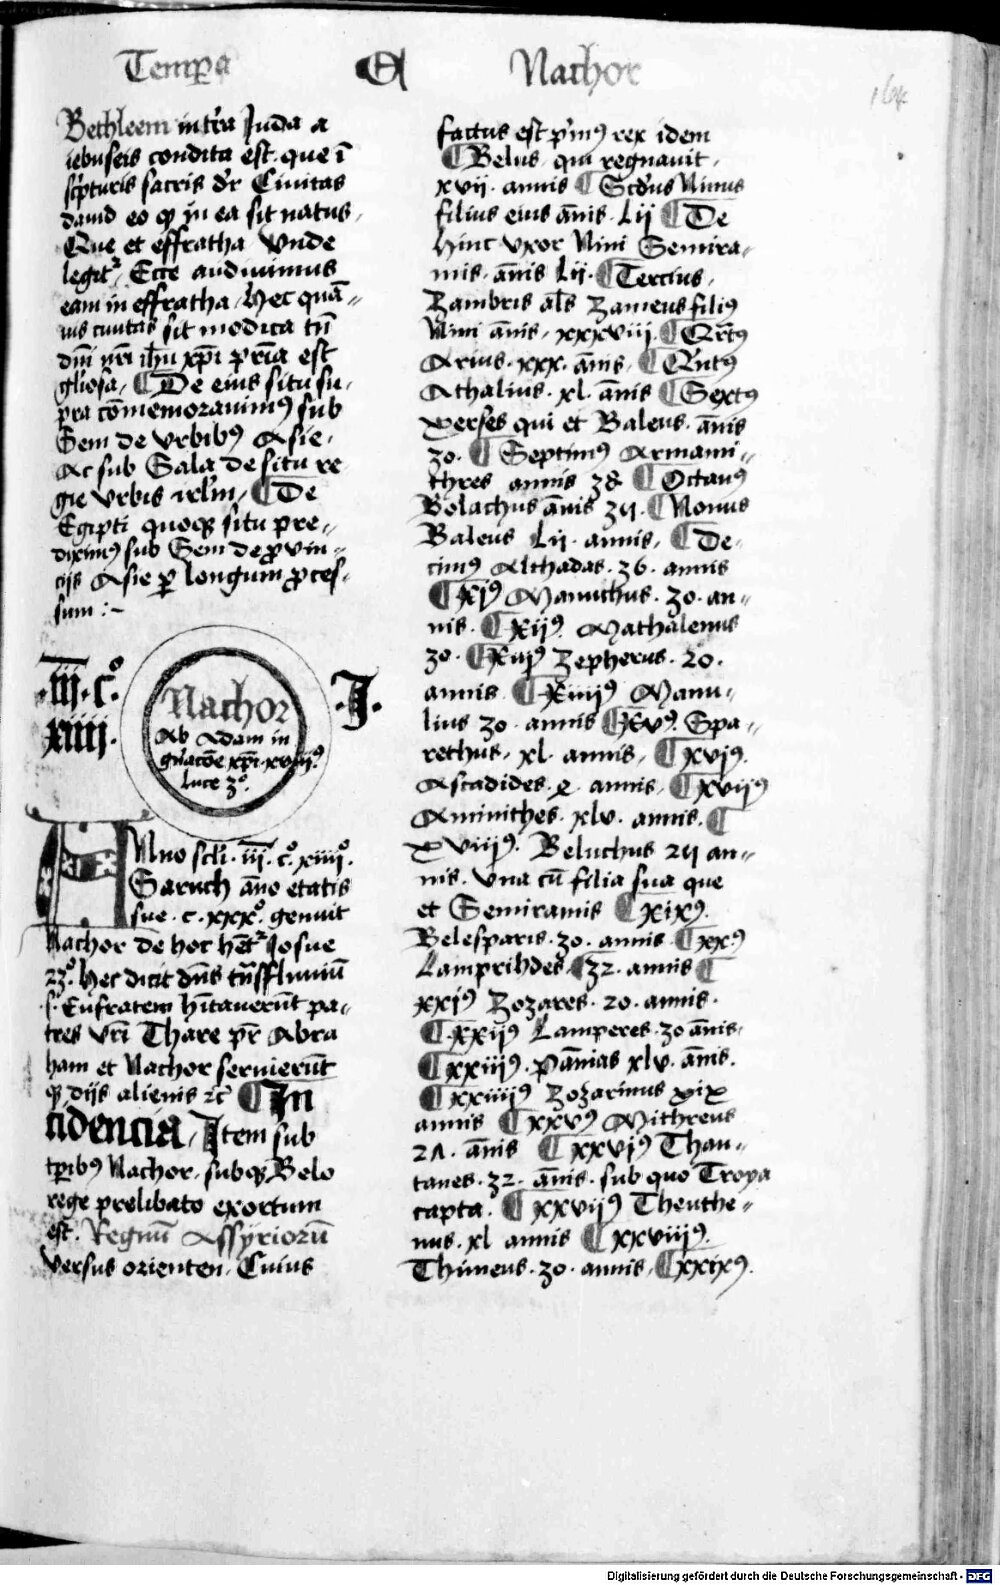 Temp̲a
Nachor
164
Bethleem in tr̄a Juda a
iebuseis condita est. que ī
sc̄pturis sacris dr̄ Ciuitas
dauid eo ꝙ in ea sit natus.
Que et effratha Vnde
legit᷑ Ecce audiuimus
eam in effratha. Hec quā⸗
uis ciuitas sit modica tn̄
dn̄i nr̄i ih̄u xp̄i pr̄ia est
gl̄iosa. ¶ De eius situ su⸗
pra cōmemorauimꝰ sub
Sem de vrbibꝰ Asie.
Ac sub Sala de situ re
gie vrbis irl̄m. ¶ De
Egipti quoqꝫ situ pre⸗
diximꝰ sub Sem de ꝓvin⸗
cijs Asie ꝑ longum ꝓces⸗
sum :~
.iij.c°
xiiij.
Nachor
Ab Adam in
gn̄ac̄oe xp̄i xviijꝰ
luce 3°.
.J.
Anno sc̄li. iij. c°. xiiij°.
Saruch āno etatis
sue .c. xxx°. genuit
Nachor de hoc hēt᷑ Josue
23° hec dicit dn̄s trn̄sfluuiū
.s. Eufratem hītauerūt pa⸗
tres vr̄i Thare pr̄ Abra
ham et Nachor seruierūt
qꝫ dijs alienis ꝛc̄ ¶ In
cidencia, Item sub
tꝑibꝰ Nachor. subqꝫ Belo
rege prelibato exortum
est. Regnū Assyriorū
versus orienten. Cuius
factus est p̄mꝰ rex idem
¶ Belus. qui regnauit.
xvij. annis ¶ Scd̄us Ninus
filius eius ānis. Lij ¶ De
hinc vxor Nini Semira⸗
mis. ānis Lij. ¶ Tercius.
Zambris al̄s Zameus filiꝰ
Nini ānis. xxxviij. ¶ Qr̄tꝰ
Arius. xxx. ānis. ¶ Qn̄tꝰ
Athalius. xl. ānis ¶ Sextꝰ
xerses qui et Baleus. ānis
30. ¶ Septimꝰ Armami⸗
thres annis 38 ¶ Octauꝰ
Bolachus ānis 34. ¶ Nonus
Baleus Lij. annis. ¶ De⸗
cimꝰ Althadas. 36. annis
¶ Xjꝰ Manuthus. 30. an⸗
nis. ¶ Xijꝰ. Mathalenus
30. ¶ Xiijꝰ Zepherus. 20.
annis ¶ Xiiijꝰ Manu⸗
lius 30. annis ¶ Xvꝰ. Spa⸗
rethus. xl. annis. ¶ xvjꝰ.
Ascadides. annis. ¶ xvijꝰ
Aminithes. xlv. annis. ¶
xviijꝰ. Beluchus 24 an⸗
nis. vna cū filia sua que
et Semiramis ¶ xixꝰ.
Belesparis. 30. annis. ¶ xxꝰ
Lamprihdes. ¶ 32. annis ¶
xxjꝰ Zozares. 20. annis.
¶ xxijꝰ Lamperes. 30 ānis.
¶ xxiijꝰ. Pānias xlv. ānis.
¶ xxiiijꝰ Zozarinus xix
annis ¶ xxvꝰ Mithreus
27. ānis ¶ xxvjꝰ Thau⸗
tanes. 32. ānis. sub quo Troya
capta. ¶ xxvijꝰ Theuthe⸗
nus. xl annis ¶ xxviijꝰ.
Thineus. 30. annis. ¶ xxixꝰ.
Digitalisierung gefördert durch die Deutsche Forschungsgemeinschaft - DFG